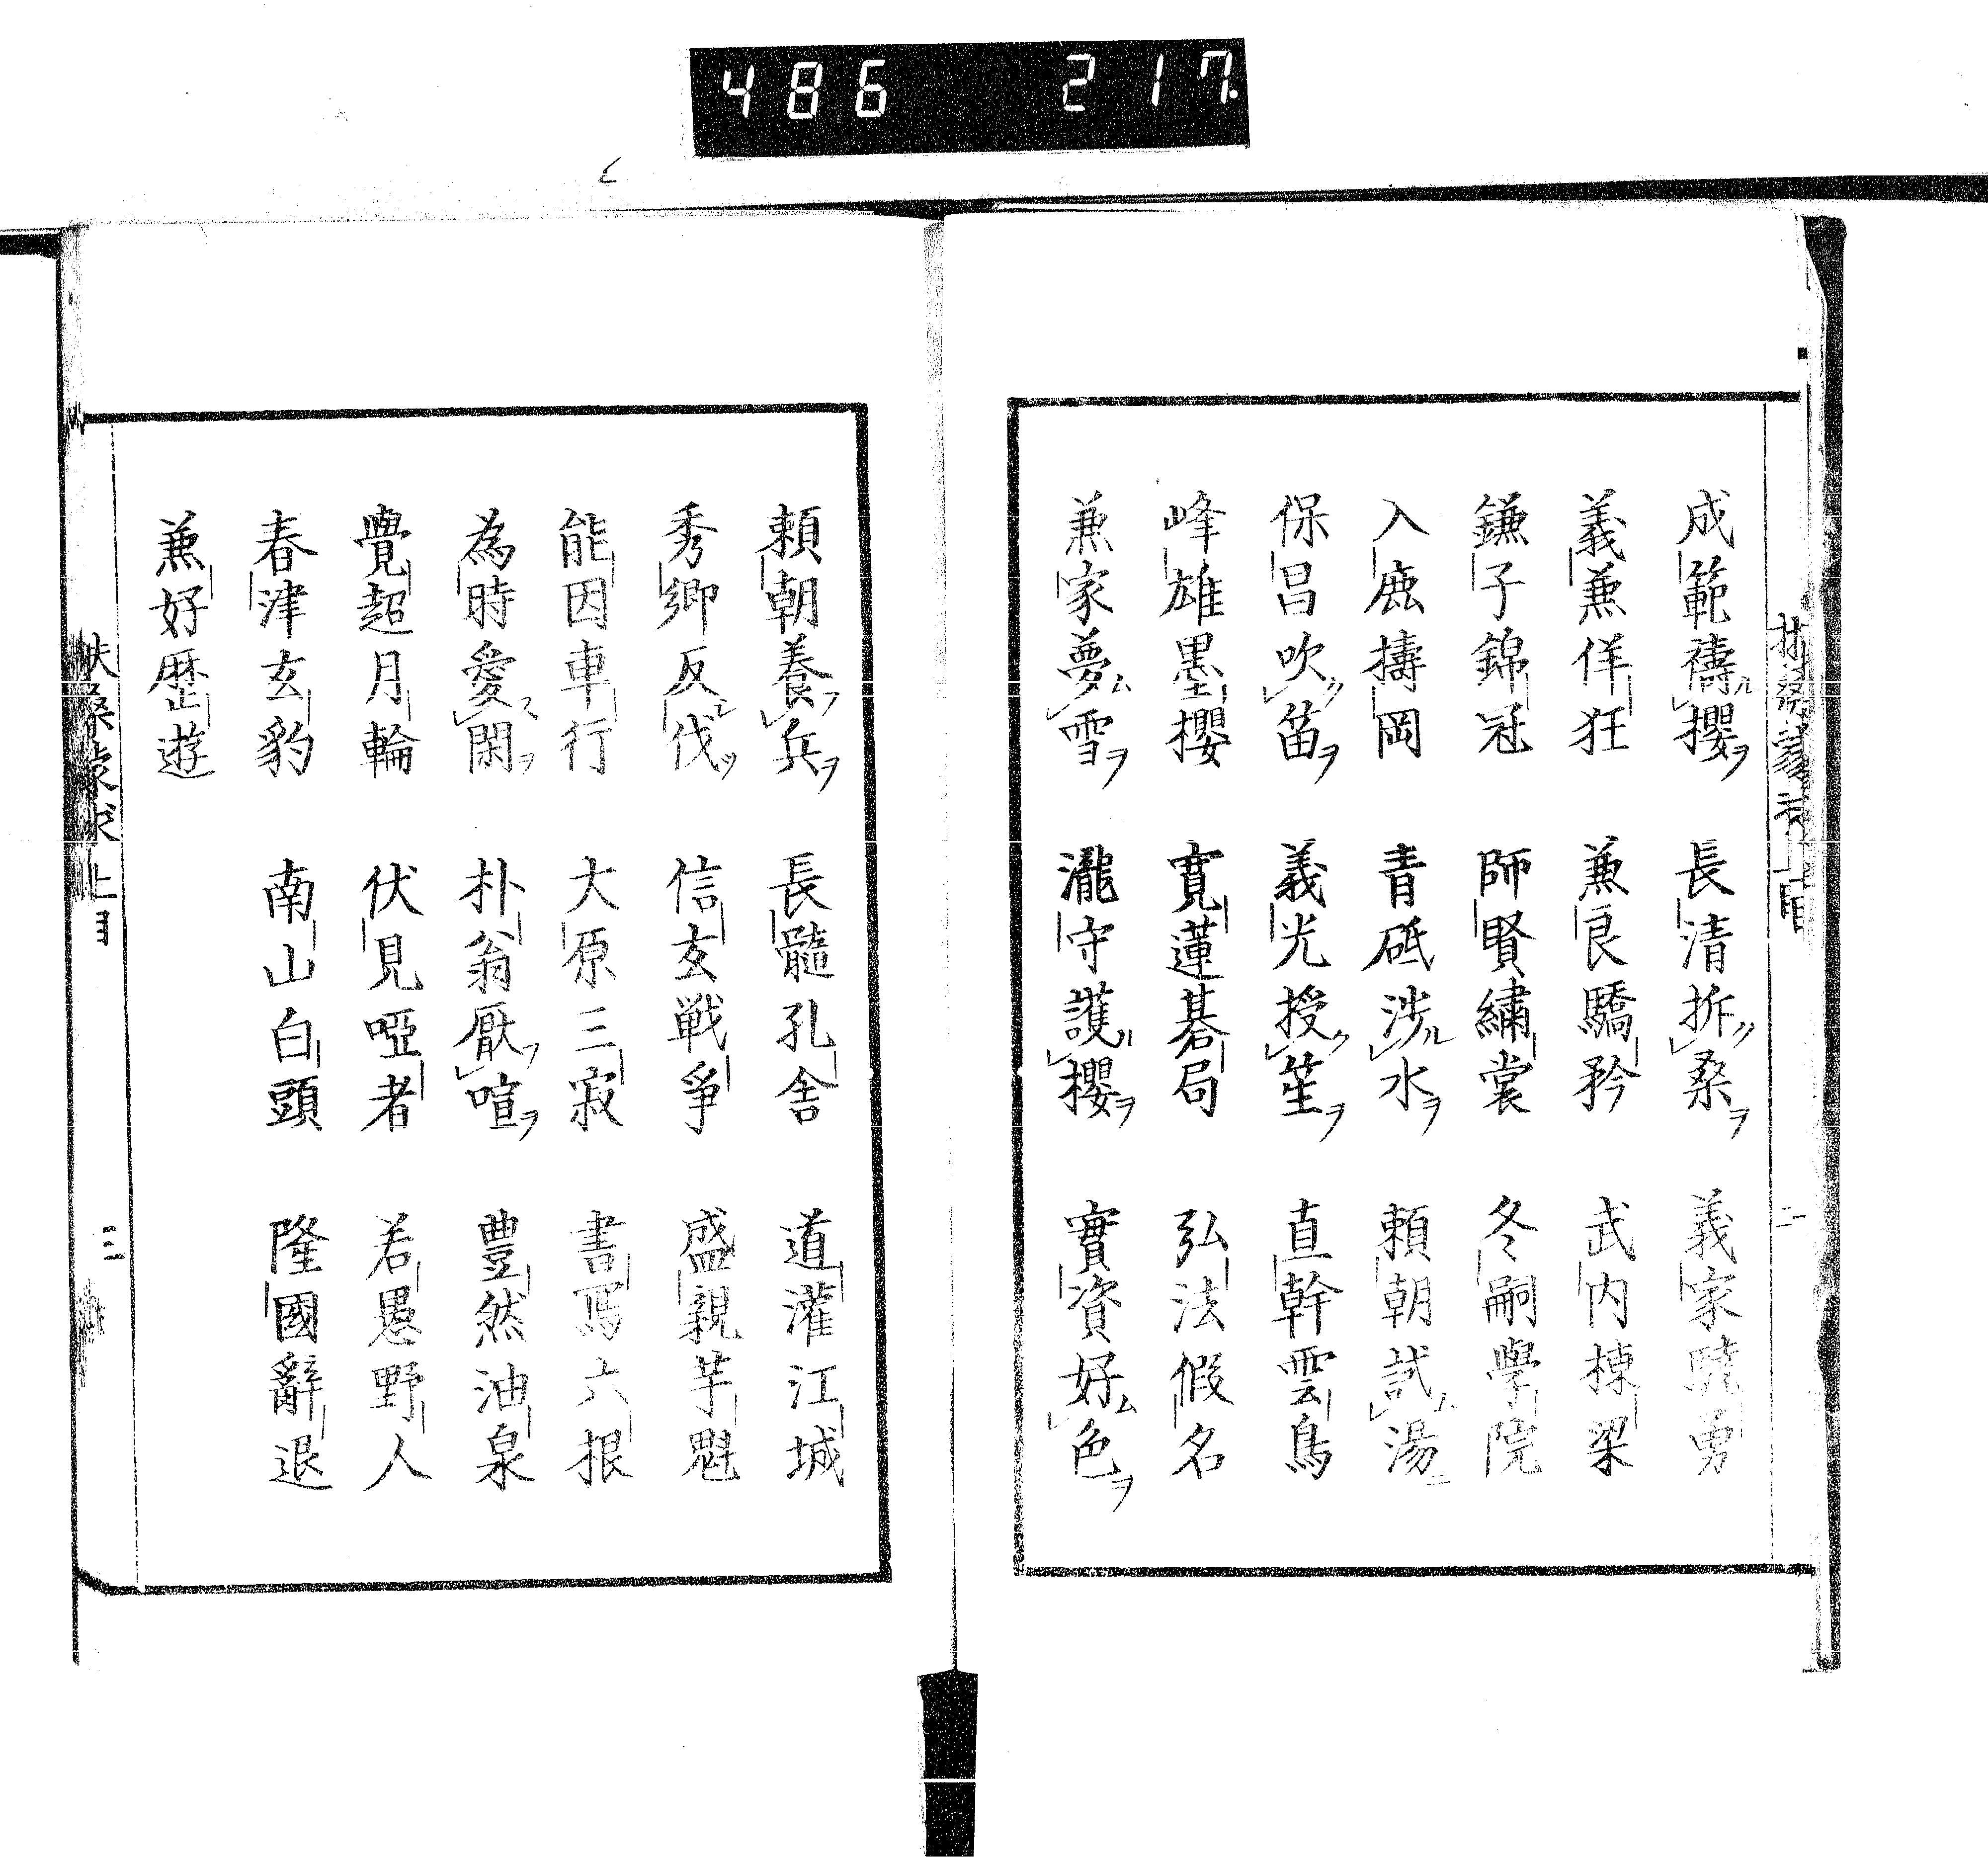 486 217.
扶桑蒙求上目 二
成範禱ル櫻ヲ 長清折ツ桑ヲ 義家驍勇
義兼佯狂 兼良驕矜 武内棟梁
鎌子錦冠 師賢繡裳 冬嗣學院
入鹿擣岡 青砥渉ル水ヲ 頼朝試ム湯ニ
保昌吹ク笛ヲ 義光授ク笙ヲ 直幹雲鳥
峰雄墨櫻 寛蓮碁局 弘法假名
兼家夢ム雪ヲ 瀧守護ル櫻ヲ 實資好ム色ヲ
頼朝養フ兵ヲ 長髓孔舎 道灌江城
秀郷反レ伐ツ 信玄戦爭 盛親芋魁
能因車行 大原三寂 書寫六根
為時愛ス閑ヲ 朴翁厭フ喧ヲ 豊然油泉
覺超月輪 伏見啞者 若愚野人
春津玄豹 南山白頭 隆國辭退
兼好歴遊
扶桑蒙求上目 三